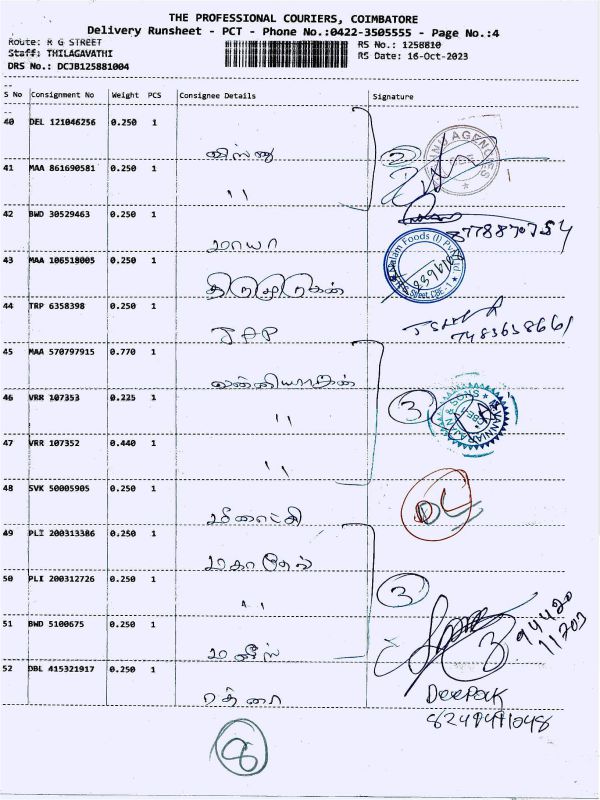 THE PROFESSIONAL COURIERS, COIMBATORE
Delivery Runsheet - PCT - Phone No.:0422-3505555 - Page No.:4
Route: R G STREET
RS No.: 1258810
Staff: THILAGAVATHI
RS Date: 16-Oct-2023
DRS No.: DCJB125881004
S No Consignment No Weight PCS Consignee Details Signature
40 DEL 121046256 0.250 1
விஸ்ணு
2
41 MAA 861690581 0.250 1
''
42 BWD 30529463 0.250 1
மாயா
43 MAA 106518005 0.250 1
திருமுருகன்
44 TRP 6358398 0.250 1
7483658661
45 MAA 570797915 0.770 1
வன்னியராஜன்
46 VRR 107353 0.225 1
''
3
47 VRR 107352 0.440 1
''
48 SVK 50005905 0.250 1
மீனாட்சி
DL
49 PLI 200313386 0.250 1
மகாதேவ்
50 PLI 200312726 0.250 1
''
3
51 BWD 5100675 0.250 1
மனீஸ்
94420
11203
52 DBL 415321917 0.250 1
Deepak
8